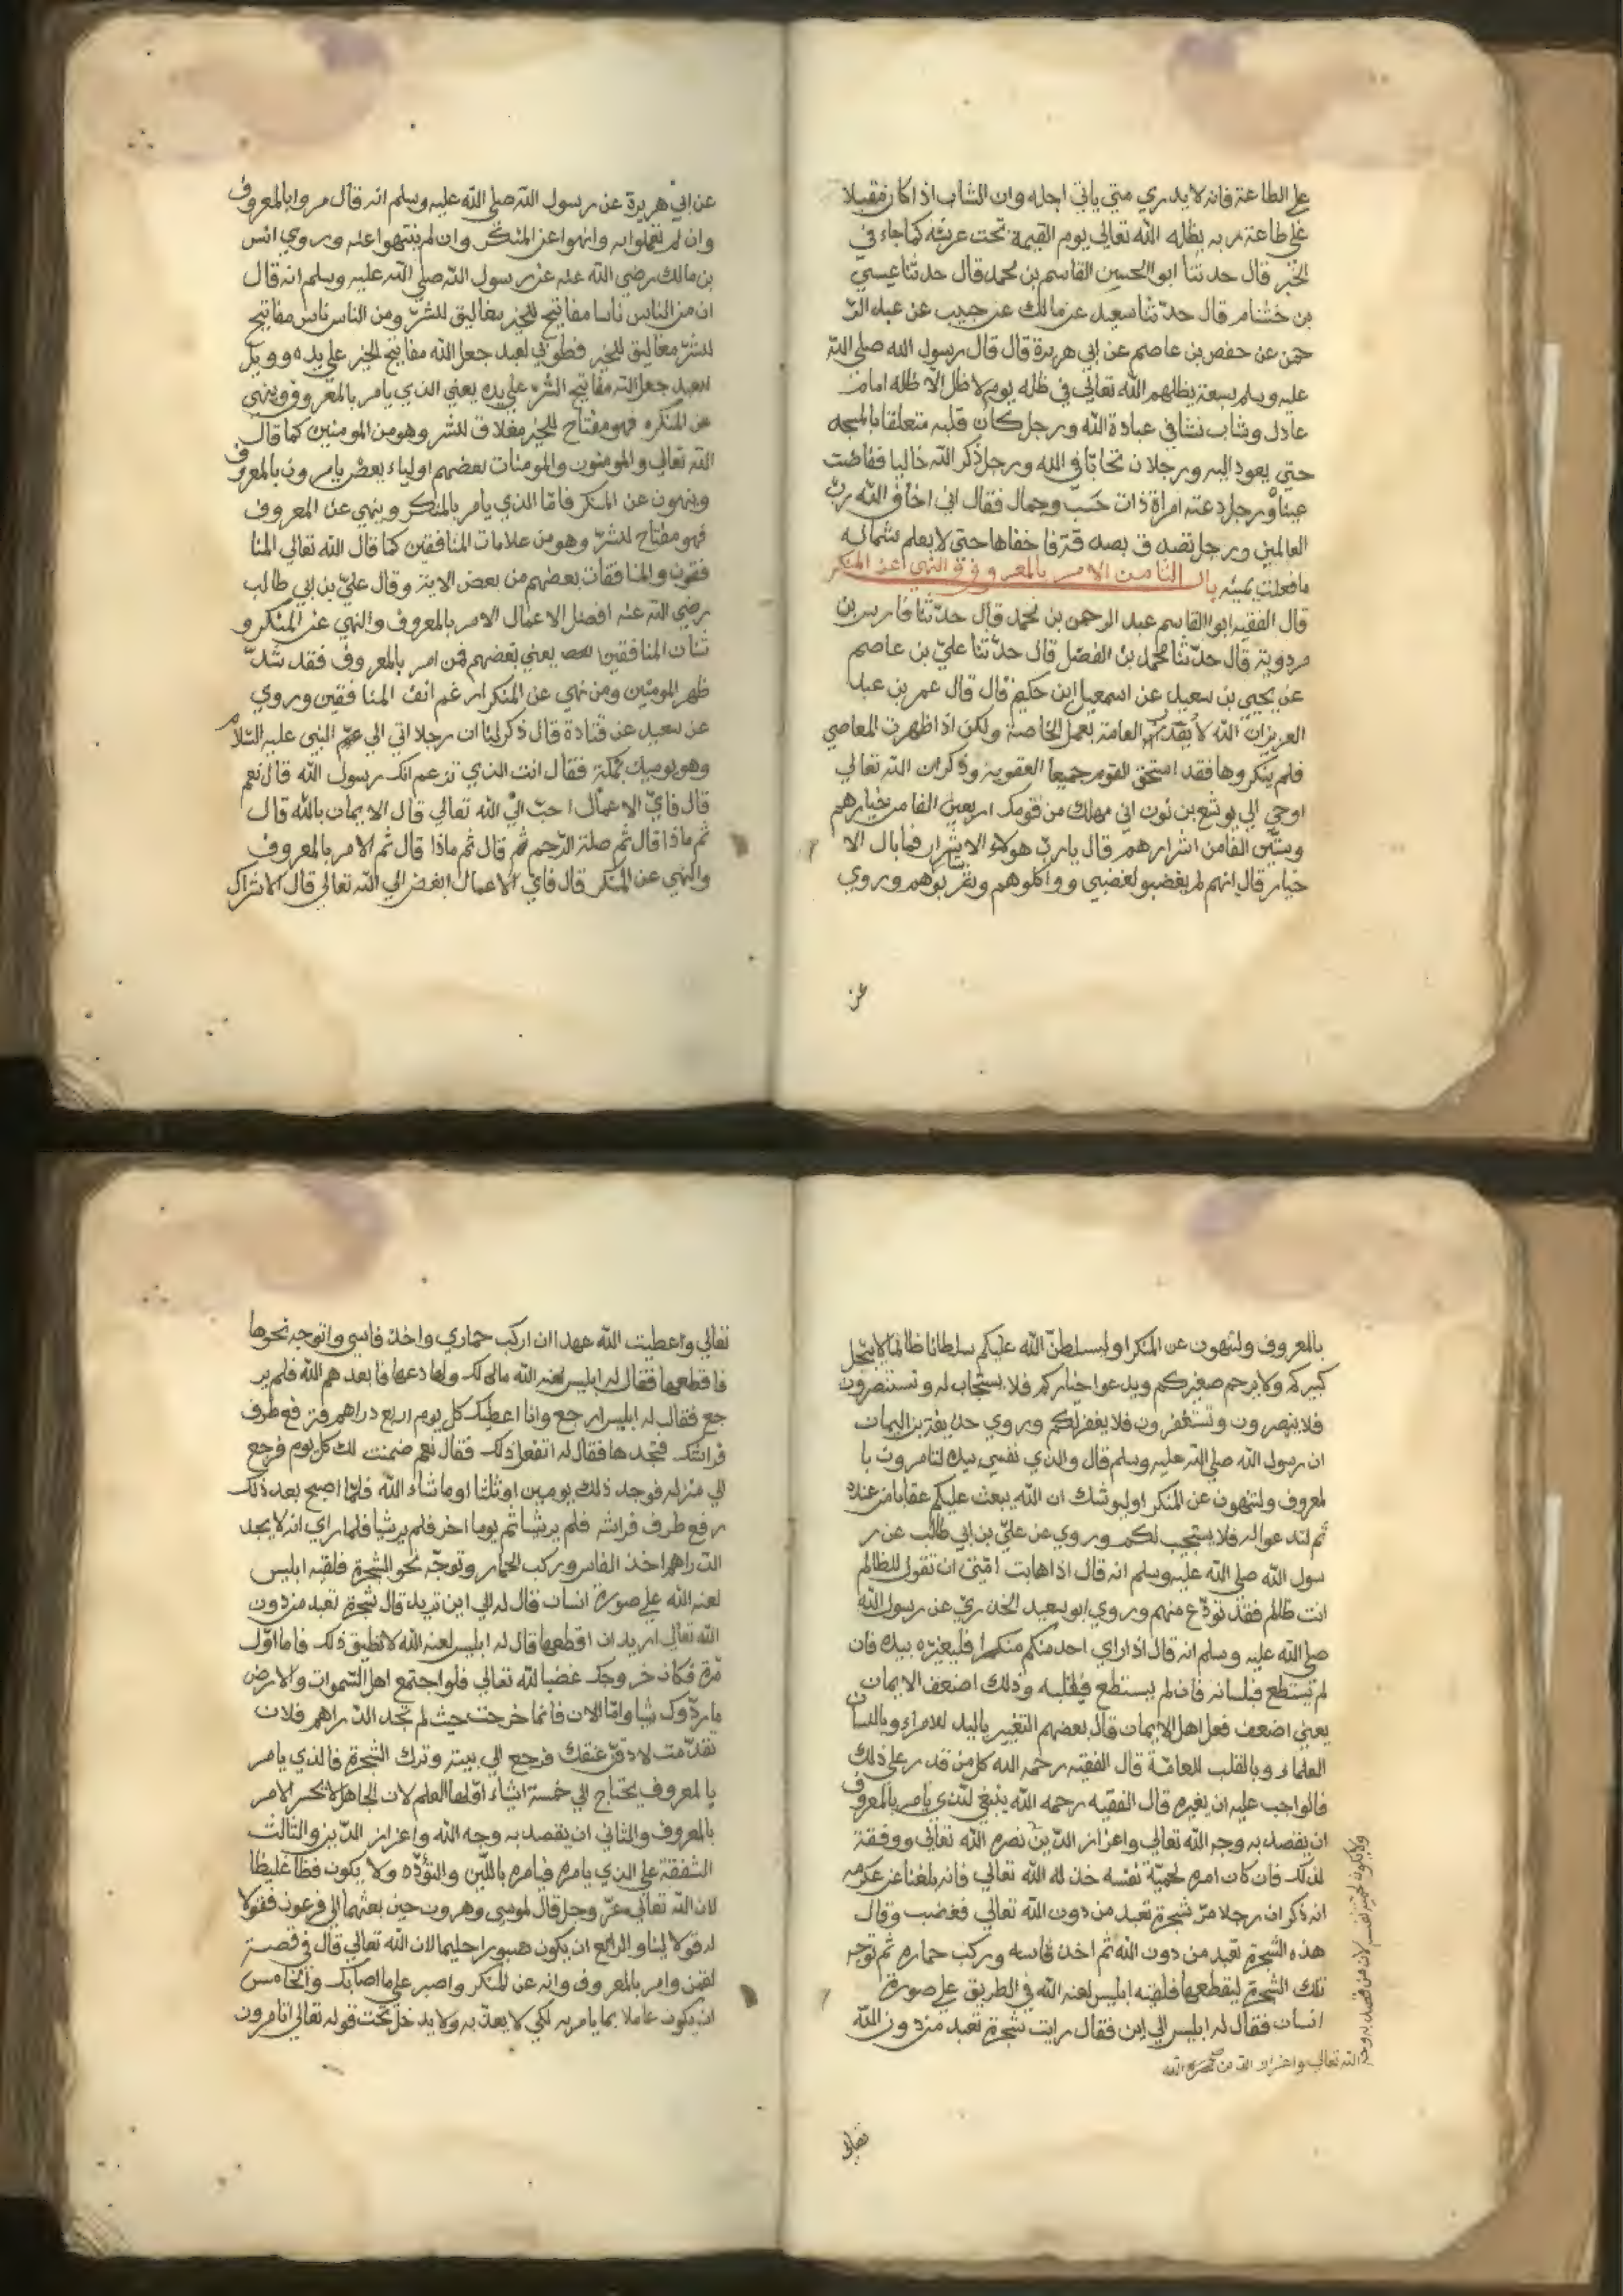 علي الطاعة فانه لا يدري متي ياتي اجله وان الشاب اذا كان مقبلا
علي طاعة ربه يظله الله تعالي يوم القيمة تحت عرشه كما جاء في
الخبر قال حدثنا ابو الحسين القاسم بن محمد قال حدثنا عيسي
بن خشنام قال حدثنا سعيد عن مالك عن حبيب عن عبد الر
حمن عن حفص بن عاصم عن ابي هريرة قال قال رسول الله صلي الله
عليه وسلم سبعة يظلهم الله تعالي في ظله يوم لا ظل الا ظله امام
عادل وشاب نشا في عبادة الله ورجل كان قلبه متعلقا بالمسجد
حتي يعود اليه ورجلان تحابا في الله ورجل ذكر الله خاليا ففاضت
عيناه ورجل دعته امراة ذات حسب وجمال فقال اني اخاف الله رب
العالمين ورجل تصدق بصدقة فاخفاها حتي لا يعلم شماله
ما فعلت يمينه باب الثامن الامر بالمعروف و النهي عن المنكر
قال الفقيه ابو القاسم عبد الرحمن بن محمد قال حدثنا فارس بن
مردوية قال حدثنا محمد بن الفضل قال حدثنا علي بن عاصم
عن يحيي بن سعيد عن اسمعيل ابن حكيم قال قال عمر بن عبد
العزيز ان الله لا يعذب العامة بعمل الخاصة ولكن اذا ظهرت المعاصي
فلم ينكروها فقد استحق القوم جميعا العقوبة وذكر ان الله تعالي
اوحي الي يوشع بن نون اني مهلك من قومك اربعين الفا من خيارهم
وستين الفا من اشرارهم قال يا رب هولاء الاشرار فما بال الا
خيار قال انهم لم يغضبو لغضبي وواكلوهم وشربوهم وروي
عن
عن ابي هريرة عن رسول الله صلي الله عليه وسلم انه قال مروا بالمعروف
وان لم تعملوا به وانهوا عن المنكر وان لم تنتهوا عنه وروي انس
بن مالك رضي الله عنه عن رسول الله صلي الله عليه وسلم انه قال
ان من الناس ناسا مفاتيح للخير مغاليق للشر ومن الناس ناس مفاتيح
للشر مغاليق للخير فطوبي لعبد جعل الله مفاتيح الخير علي يده وويل
لعبد جعل الله مفاتيح الشر علي يده يعني الذي يامر بالمعروف وينهي
عن المنكر فهو مفتاح للخير مغلاق للشر وهو من المومنين كما قال
الله تعالي والمومنون والمومنات بعضهم اولياء بعض يامرون بالمعروف
وينهون عن المنكر فاما الذي يامر بالمنكر وينهي عن المعروف
فهو مفتاح للشر وهو من علامات المنافقين كما قال الله تعالي المنا
فقون والمنافقات بعضهم من بعض الاية وقال علي بن ابي طالب
رضي الله عنه افضل الاعمال الامر بالمعروف والنهي عن المنكر و
شنان المنافقين يعني بغضهم فمن امر بالمعروف فقد شد
ظهر المومنين ومن نهي عن المنكر ارغم انف المنافقين وروي
عن سعيد عن قتادة قال ذكر لنا ان رجلا اتي الي النبي عليه السلام
وهو يوميذ بمكة فقال انت الذي تزعم انك رسول الله قال نعم
قال فاي الاعمال احب الي الله تعالي قال الايمان بالله قال
ثم ماذا قال ثم صلة الرحم قال ثم ماذا قال ثم الامر بالمعروف
والنهي عن المنكر قال فاي الاعمال ابغض الي الله تعالي قال الاشراك
بالمعروف ولتنهون عن المنكر او ليسلطن الله عليكم سلطانا ظالما لا يجل
كبيركم ولا يرحم صغيركم ويدعوا خياركم فلا يستجاب له وتستنصرون
فلا ينصرون وتستغفرون فلا يغفر لكم وروي حذيفة بن اليمان
ان رسول الله صلي الله عليه وسلم قال والذي نفسي بيده لتامرون با
لمعروف ولتنهون عن المنكر او ليوشك ان الله يبعث عليكم عقابا من عنده
ثم لتدعوا له فلا يستجيب لكم وروي عن علي بن ابي طالب عن ر
سول الله صلي الله عليه وسلم انه قال اذا هابت امتي ان تقول للظالم
انت ظالم فقد تودع منهم وروي ابو سعيد الخدري عن رسول الله
صلي الله عليه وسلم انه قال اذا راي احد منكم منكرا فليغيره بيده فان
لم يستطع فبلسانه فان لم يستطع فبقلبه وذلك اضعف الايمان
يعني اضعف فعل اهل الايمان قال بعضهم التغيير باليد للامراء وباللسان
العلماء وبالقلب للعامة قال الفقيه رحمه الله كل من قدر علي ذلك
فالواجب عليه ان يغيره قال الفقيه رحمه الله ينبغي للذي يامر بالمعروف
ان يقصد به وجه الله تعالي واعزاز الدين نصره الله تعالي ووفقه
لذلك فان كان امره لحمية نفسه خذله الله تعالي فانه بلغنا عن عكرمه
انه ذكر ان رجلا مر شجرة تعبد من دون الله تعالي فغضب وقال
هذه الشجرة تعبد من دون الله ثم اخذ فاسه وركب حماره ثم توجه
تلك الشجرة ليقطعها فلقيه ابليس لعنه الله في الطريق علي صورة
انسان فقال له ابليس الي اين فقال رايت شجرة تعبد من دون الله
ولا يكون لحمية نفسه لان من قصد به وجه
الله تعالي واعزاز الدين نصره الله
تعالي
تعالي واعطيت الله عهدا ان اركب حماري واخذ فاسي واتوجه نحوها
فاقطعها فقال له ابليس لعنه الله مالك ولها دعها فابعدهم الله فلم ير
جع فقال له ابليس ارجع وانا اعطيك كل يوم اربع دراهم فترفع طرف
فراشك فتجدها فقال له اتفعل ذلك فقال نعم ضمنت لك كل يوم فرجع
الي منزله فوجد ذلك يومين او ثلثا او ما شاء الله فلما اصبح بعد ذلك
رفع طرف فراشه فلم ير شيا ثم يوما اخر فلم ير شيا فلما راي انه لا يجد
الدراهم اخذ الفاس وركب الحمار وتوجه نحو الشجرة فلقيه ابليس
لعنه الله علي صورة انسان قال له الي اين تريد قال شجرة تعبد من دون
الله تعالي اريد ان اقطعها قال له ابليس لعنه الله لا تطيق ذلك فاما اول
مرة فكان خروجك غضبا لله تعالي فلو اجتمع اهل السموات والارض
ما ردوك شيا واما الان فانما خرجت حيث لم تجد الدراهم فلان
تقدمت لادقن عنقك فرجع الي بيته وترك الشجرة فالذي يامر
بالمعروف يحتاج الي خمسة اشياء اولها العلم لان الجاهل لا يحسن الامر
بالمعروف والثاني ان يقصد به وجه الله واعزاز الدين والثالث
الشفقة علي الذي يامره فيامره باللين والتؤده ولا يكون فظا غليظا
لان الله تعالي عز وجل قال لموسي وهرون حين بعثهما الي فرعون فقولا
له قولا لينا والرابع ان يكون صبورا حليما لان الله تعالي قال في قصة
لقمن وامر بالمعروف وانه عن المنكر واصبر علي ما اصابك والخامس
ان يكون عاملا بما يامر به لكي لا يعذب به ولا يدخل تحت قوله تعالي اتامرون